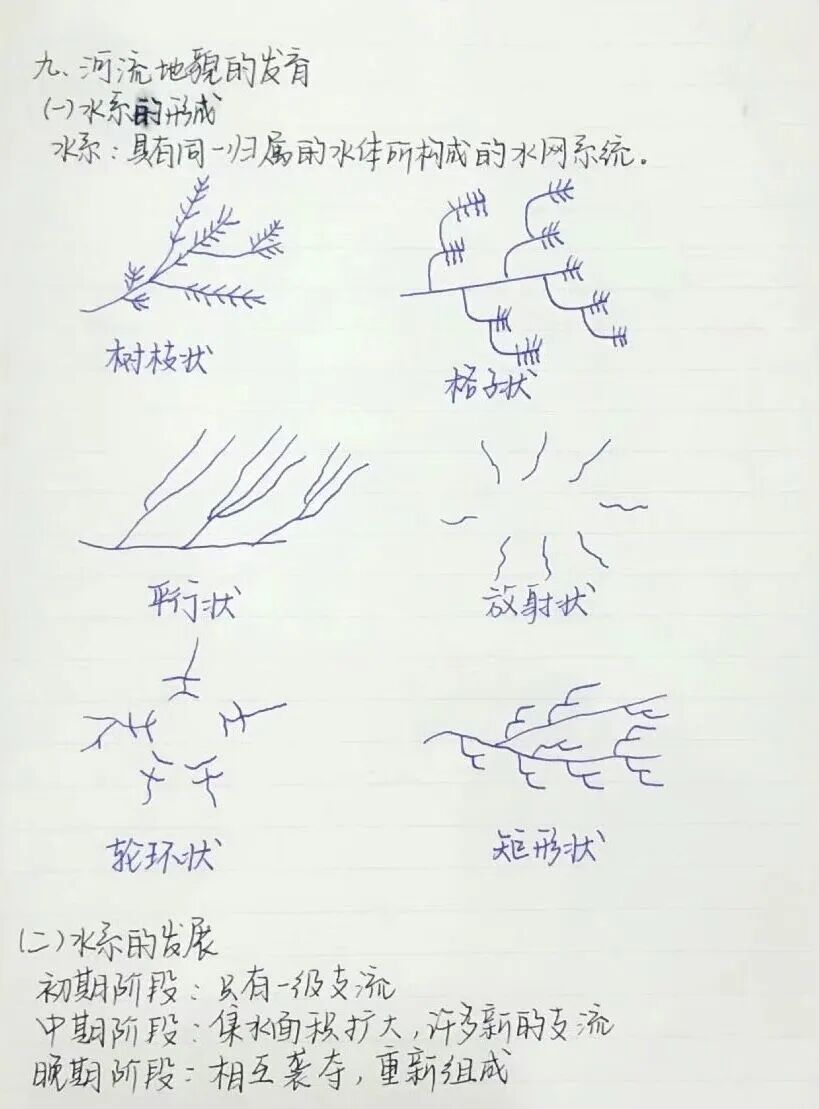 九、河流地貌的发育
(一)水系的形成
水系:具有同一归属的水体所构成的水网系统.
树枝状
格子状
平行状
放射状
轮环状
矩形状
(二)水系的发展
初期阶段:只有一级支流
中期阶段:集水面积扩大,许多新的支流
晚期阶段:相互袭夺,重新组成